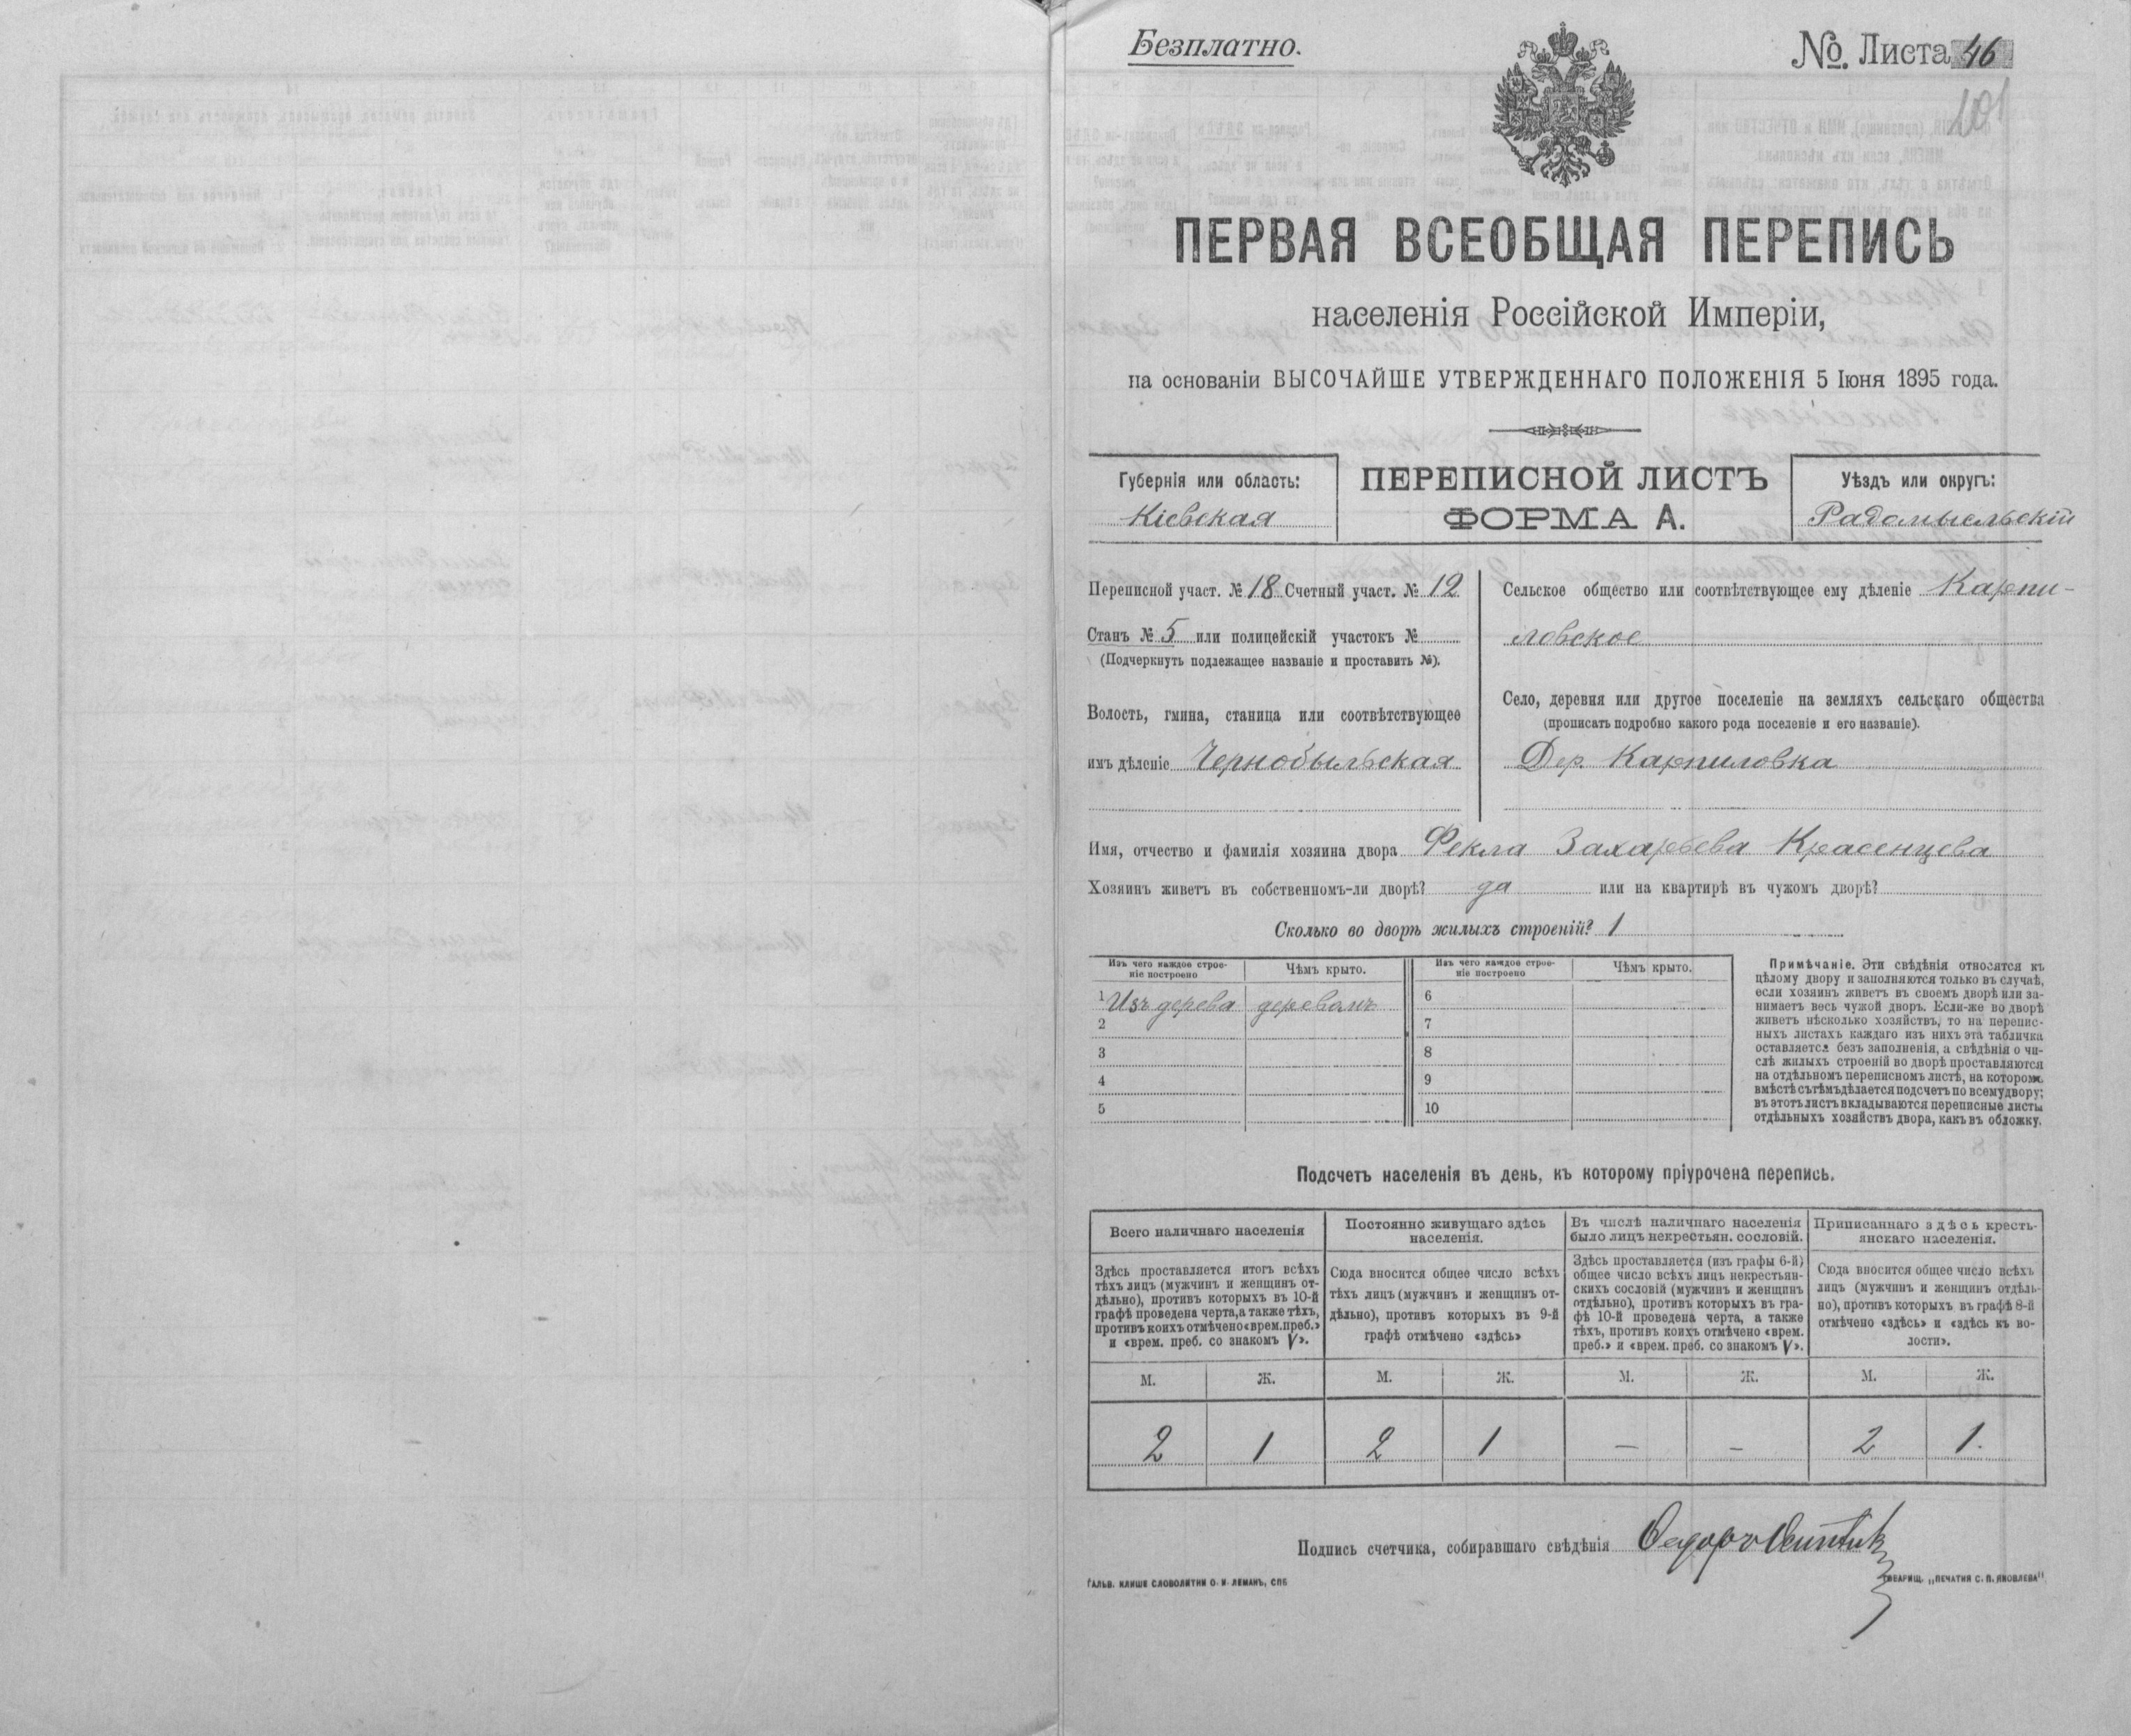 Безплатно.
№. Листа 46
101
ПЕРВАЯ ВСЕОБЩАЯ ПЕРЕПИСЬ
населенія Россійской Имперіи,
на основаніи ВЫСОЧАЙШЕ УТВЕРЖДЕННАГО ПОЛОЖЕНІЯ 5 Іюня 1895 года.
Губернія или область:
Кіевская
ПЕРЕПИСНОЙ ЛИСТЪ
ФОРМА А.
Уѣздъ или округъ:
Радомысльскій
Переписной участ. № 18 Счетный участ. № 12
Станъ № 5 или полицейскій участокъ №
(Подчеркнуть подлежащее названіе и проставить №).
Волость, гмина, станица или соотвѣтствующее
имъ дѣленіе Чернобыльская
Сельское общество или соотвѣтствующее ему дѣленіе Карпи-
ловское
Село, деревня или другое поселеніе на земляхъ сельскаго общества
(прописать подробно какого рода поселеніе и его названіе).
Дер. Карпиловка
Имя, отчество и фамилія хозяина двора Фекла Захарьева Красенцева
Хозяинъ живетъ въ собственномъ-ли дворѣ? да или на квартирѣ въ чужомъ дворѣ?
Сколько во дворѣ жилыхъ строеній? 1
Изъ чего каждое строе-
ніе построено
Чѣмъ крыто.
Изъ чего каждое строе-
ніе построено
Чѣмъ крыто.
1 Изъ дерева деревомъ 6
2 7
3 8
4 9
5 10
Примѣчаніе. Эти свѣдѣнія относятся къ
цѣлому двору и заполняются только въ случаѣ,
если хозяинъ живетъ въ своемъ дворѣ или за-
нимаетъ весь чужой дворъ. Если-же во дворѣ
живетъ нѣсколько хозяйствъ, то на перепис-
ныхъ листахъ каждаго изъ нихъ эта табличка
оставляется безъ заполненія, а свѣдѣнія о чи-
слѣ жилыхъ строеній во дворѣ проставляются
на отдѣльномъ переписномъ листѣ, на которомъ
вмѣстѣ съ тѣмъ дѣлается подсчетъ по всему двору;
въ этотъ листъ вкладываются переписные листы
отдѣльныхъ хозяйствъ двора, какъ въ обложку.
Подсчетъ населенія въ день, къ которому пріурочена перепись.
Всего наличнаго населенія
Здѣсь проставляется итогъ всѣхъ
тѣхъ лицъ (мужчинъ и женщинъ от-
дѣльно), противъ которыхъ въ 10-й
графѣ проведена черта, а также тѣхъ,
противъ коихъ отмѣчено «врем. преб.»
и «врем. преб. со знакомъ V».
Постоянно живущаго здѣсь
населенія.
Сюда вносится общее число всѣхъ
тѣхъ лицъ (мужчинъ и женщинъ от-
дѣльно), противъ которыхъ въ 9-й
графѣ отмѣчено «здѣсь»
Въ числѣ наличнаго населенія
было лицъ некрестьян. сословій.
Здѣсь проставляется (изъ графы 6-й)
общее число всѣхъ лицъ некрестьян-
скихъ сословій (мужчинъ и женщинъ
отдѣльно), противъ которыхъ въ гра-
фѣ 10-й проведена черта, а также
тѣхъ, противъ коихъ отмѣчено «врем.
преб.» и «врем. преб. со знакомъ V».
Приписаннаго здѣсь кресть-
янскаго населенія.
Сюда вносится общее число всѣхъ
лицъ (мужчинъ и женщинъ отдѣль-
но), противъ которыхъ въ графѣ 8-й
отмѣчено «здѣсь» и «здѣсь къ во-
лости».
М. Ж. М. Ж. М. Ж. М. Ж.
2 1 2 1 — — 2 1.
Подпись счетчика, собиравшаго свѣдѣнія Ѳедоръ
ГАЛЬВ. КЛИШЕ СЛОВОЛИТНИ О. И. ЛЕМАНЪ, СПБ
ТОВАРИЩ. „ПЕЧАТНЯ С. П. ЯКОВЛЕВА"